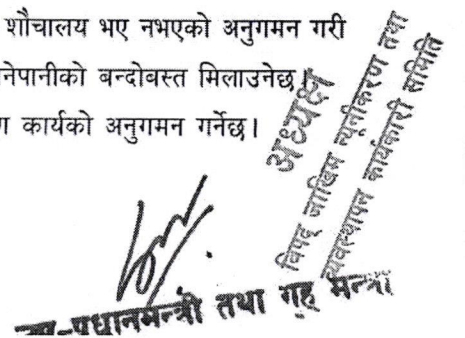 शौचालय भए नभएको अनुगमन गरी
नेपानीको बन्दोबस्त मिलाउनेछ।
कार्यको अनुगमन गर्नेछ।
अध्यक्ष
विपद् जोखिम न्यूनीकरण तथा
व्यवस्थापन कार्यकारी समिति
-प्रधानमन्त्री तथा गृह मन्त्री